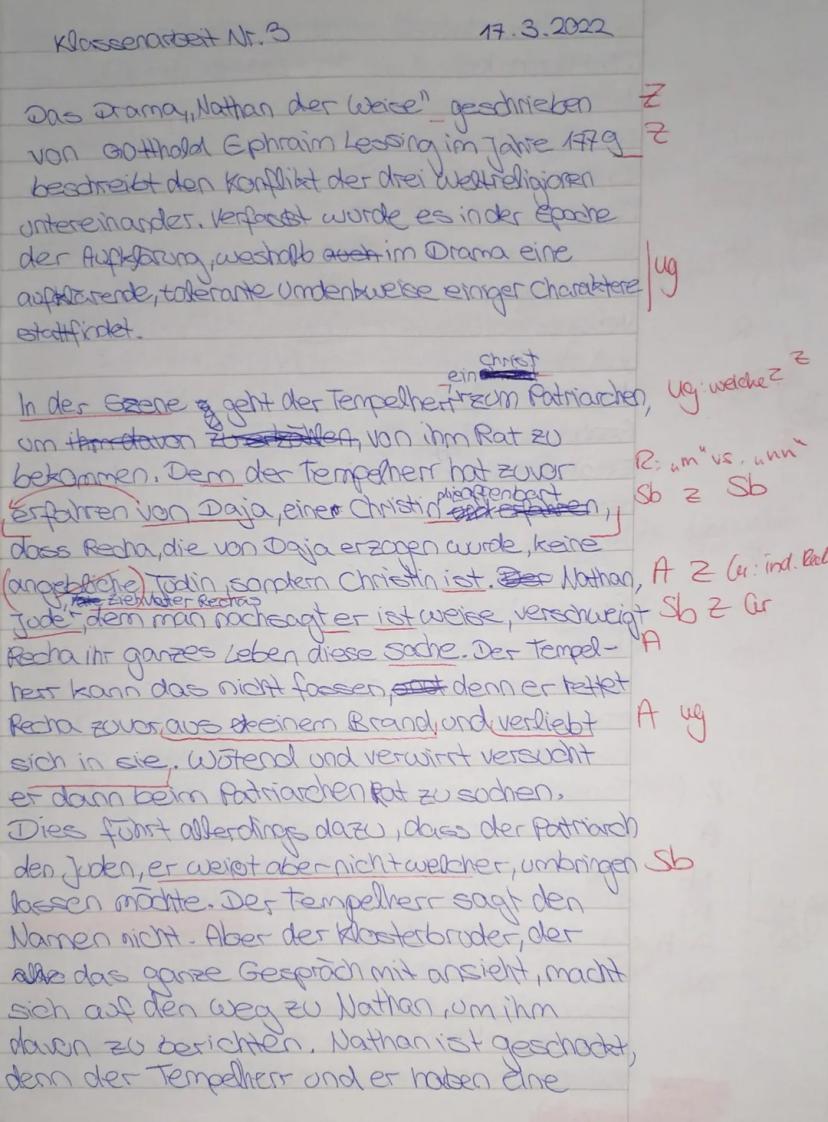 Klassenarbeit Nr. 3 17.3.2022
Das Drama „Nathan der Weise" geschrieben Z
von Gotthold Ephraim Lessing im Jahre 1779 Z
beschreibt den Konflikt der drei Weltreligionen
untereinander. Verfasst wurde es in der Epoche
der Aufklärung, weshalb auch im Drama eine
aufklärende, tolerante Umdenkweise einiger Charaktere ug
stattfindet.
ein Christ
In der Szene geht der Tempelherr zum Patriarchen, ug: welche? Z Z
um ihm davon zu erzählen, von ihm Rat zu
bekommen. Denn der Tempelherr hat zuvor R: „m" vs. „nn"
erfahren von Daja, einer Christin, Sb Z Sb
dass Recha, die von Daja erzogen wurde, keine
(angebliche) Jüdin, sondern Christin ist. Der Nathan, A Z Gr: ind. Red
Ziehvater Rechas
Jude, dem man nachsagt er ist weise, verschweigt Sb Z Gr
Recha ihr ganzes Leben diese Sache. Der Tempel- A
herr kann das nicht fassen, denn er rettet
Recha zuvor aus einem Brand und verliebt A ug
sich in sie. Wütend und verwirrt versucht
er dann beim Patriarchen Rat zu suchen.
Dies führt allerdings dazu, dass der Patriarch
den Juden, er weist aber nicht welcher, umbringen Sb
lassen möchte. Der Tempelherr sagt den
Namen nicht. Aber der Klosterbruder, der
das ganze Gespräch mit ansieht, macht
sich auf den Weg zu Nathan, um ihm
davon zu berichten. Nathan ist geschockt,
denn der Tempelherr und er haben eine